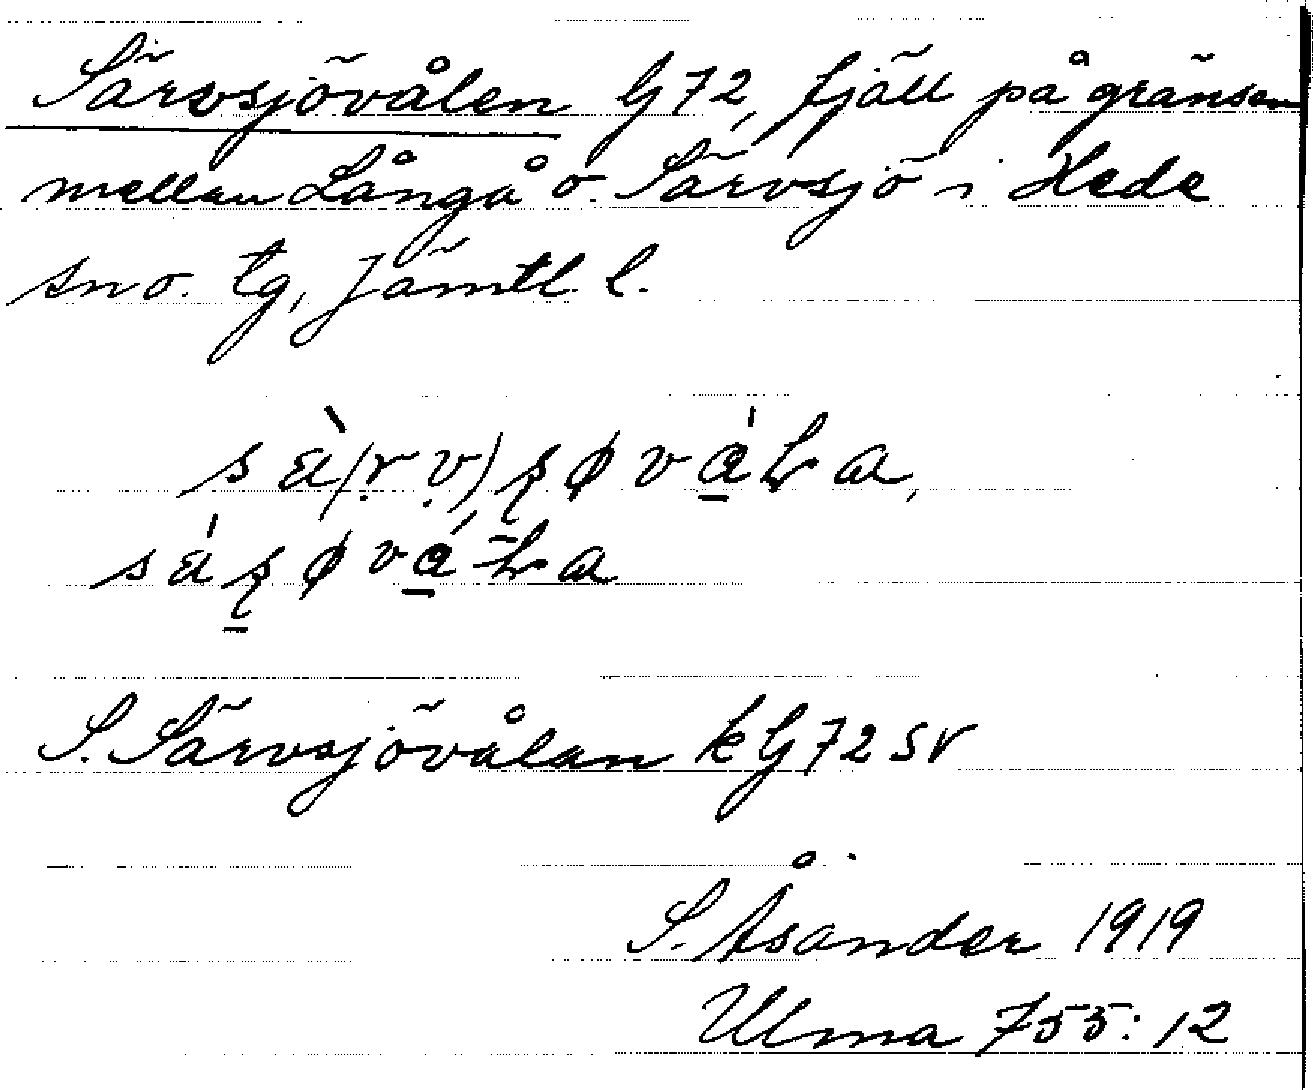 Särvsjövålen G72, fjäll på gränsen
mellan Långå o. Särvsjö i Hede
sn o. tg, Jämtl l.
S. Särvsjövålan kG72SV
S. Åsander 1919
Ulma 755:12